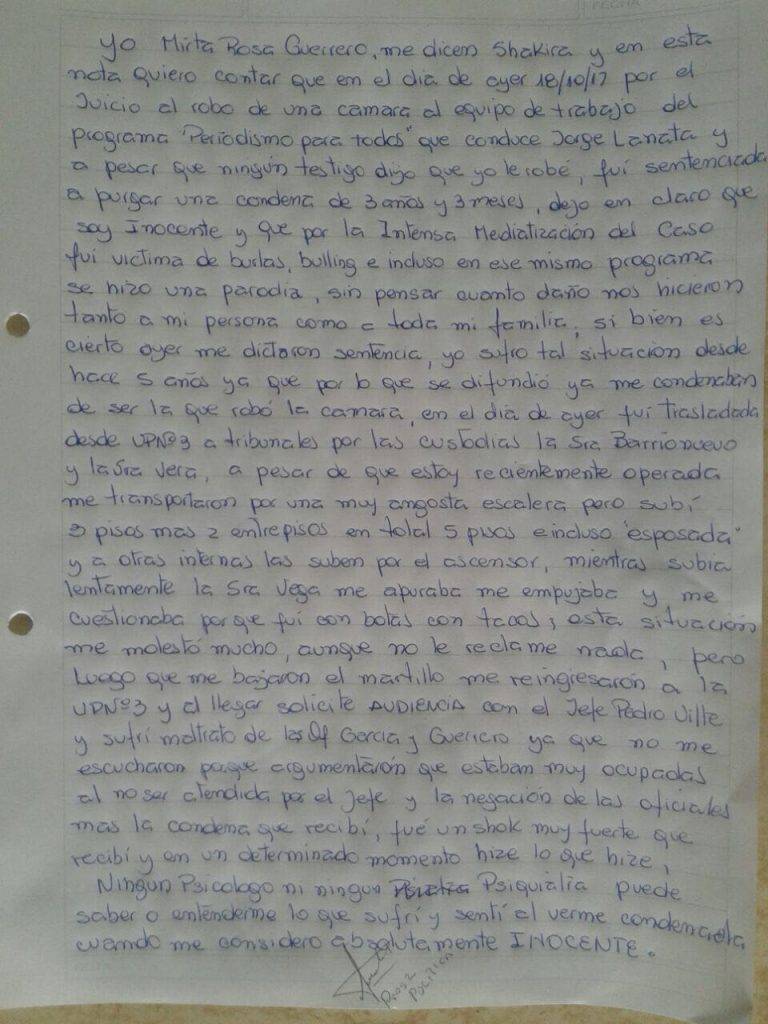 FECHA
Yo Mirta Rosa Guerrero, me dicen Shakira y en esta
nota quiero contar que en el dia de ayer 18/10/17 por el
Juicio al robo de una camara al equipo de trabajo del
programa "Periodismo para todos" que conduce Jorge Lanata y
a pesar que ningún testigo dijo que yo le robé, fuí sentenciada
a purgar una condena de 3 años y 3 meses, dejo en claro que
soy Inocente y que por la Intensa Mediatización del Caso
fuí victima de burlas, bulling e incluso en ese mismo programa
se hizo una parodia, sin pensar cuanto daño nos hicieron
tanto a mi persona como a toda mi familia, si bien es
cierto ayer me dictaron sentencia, yo sufro tal situación desde
hace 5 años ya que por lo que se difundió ya me condenaban
de ser la que robó la camara, en el dia de ayer fuí trasladada
desde UPNº3 a tribunales por las custodias la Sra Barrionuevo
y la Sra Vera, a pesar de que estoy recientemente operada
me transportaron por una muy angosta escalera pero subí
3 pisos mas 2 entrepisos en total 5 pisos e incluso "esposada"
y a otras internas las suben por el ascensor, mientras subia
lentamente la Sra Vega me apuraba me empujaba y me
cuestionaba porque fuí con botas con tacos, esta situación
me molestó mucho, aunque no le reclame nada, pero
luego que me bajaron el martillo me reingresaron a la
UPNº3 y al llegar solicite AUDIENCIA con el Jefe Pedro Ville
y sufrí maltrato de las Of Garcia y Guerrero ya que no me
escucharon porque argumentaron que estaban muy ocupadas
al no ser atendida por el Jefe y la negación de las oficiales
mas la condena que recibí, fué un shok muy fuerte que
recibí y en un determinado momento hize lo que hize,
Ningun Psicologo ni ningun Psiquiatra puede
saber o entenderme lo que sufrí y sentí al verme condenada
cuando me considero absolutamente INOCENTE.